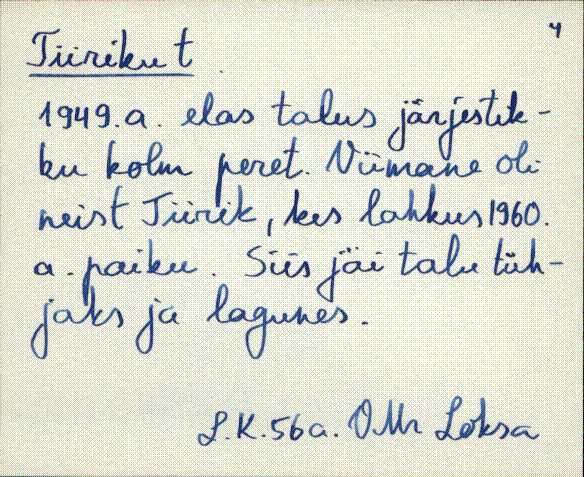 4
Tiiriku t
1949.a. elas talus järjestik-
ku kolm peret. Viimane oli
neist Tiirik, kes lahkus 1960.
a. paiku. Siis jäi talu tüh-
jaks ja lagunes.
L.K. 56 a. OMr Loksa